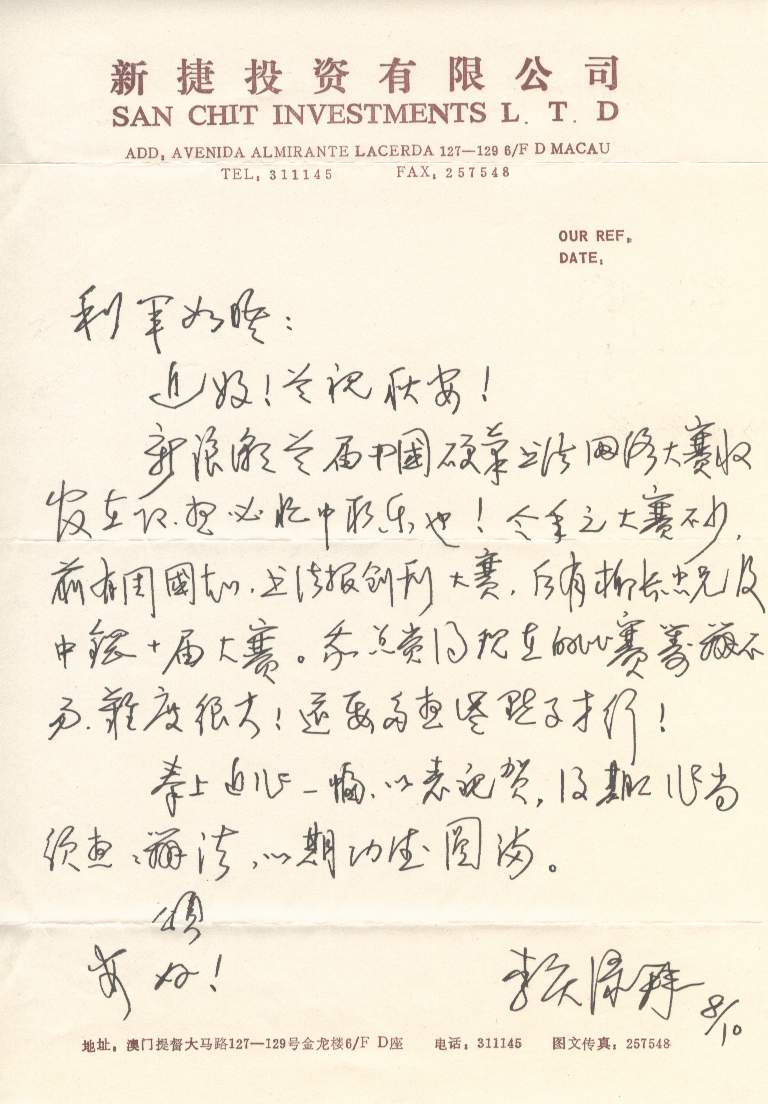 新捷投资有限公司
SAN CHIT INVESTMENTS L. T. D
ADD: AVENIDA ALMIRANTE LACERDA 127—129 6/F D MACAU
TEL: 311145 FAX: 257548
OUR REF:
DATE:
利军如晤:
近好!并祝秋安!
新浪潮并届中國硬笔书法网络大赛收
发在即.想必忙中取乐也!今年之大赛不少,
前有周國加.书法报创刊大赛,后有柳长忠兄及
中鋼十届大赛。我总觉得现在的比赛筹辦不
易.難度很大!还要多想些點子才行!
奉上近作一幅.以表祝贺,后期工作尚
须想想辦法,以期功德圆满。
颂
安好!
8/10
地址:澳门提督大马路127—129号金龙楼6/F D座 电话:311145 图文传真:257548